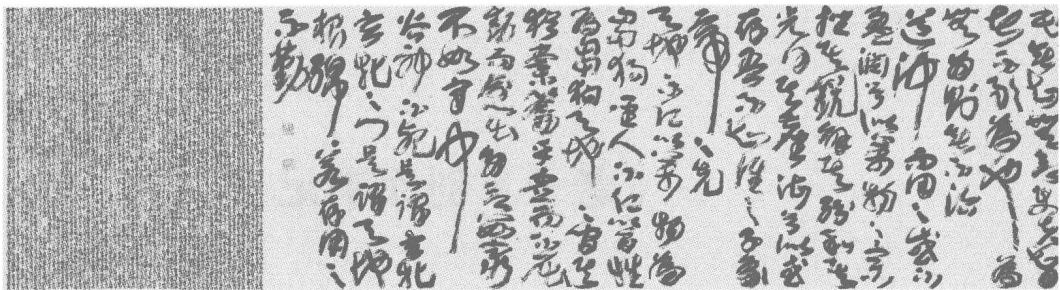 民無知無欲使夫智
者不敢為也 為
無為則無不治
道沖而用之或不
盈淵兮似萬物之宗
挫其銳解其紛和其
光同其塵湛兮似或
存吾不知誰之子象
帝之先
天地不仁以萬物為
芻狗聖人不仁以百姓
為芻狗天地之間其
猶橐籥乎虛而不屈
動而愈出多言數窮
不如守中
谷神不死是謂玄牝
玄牝之門是謂天地
根綿綿若存用之
不勤